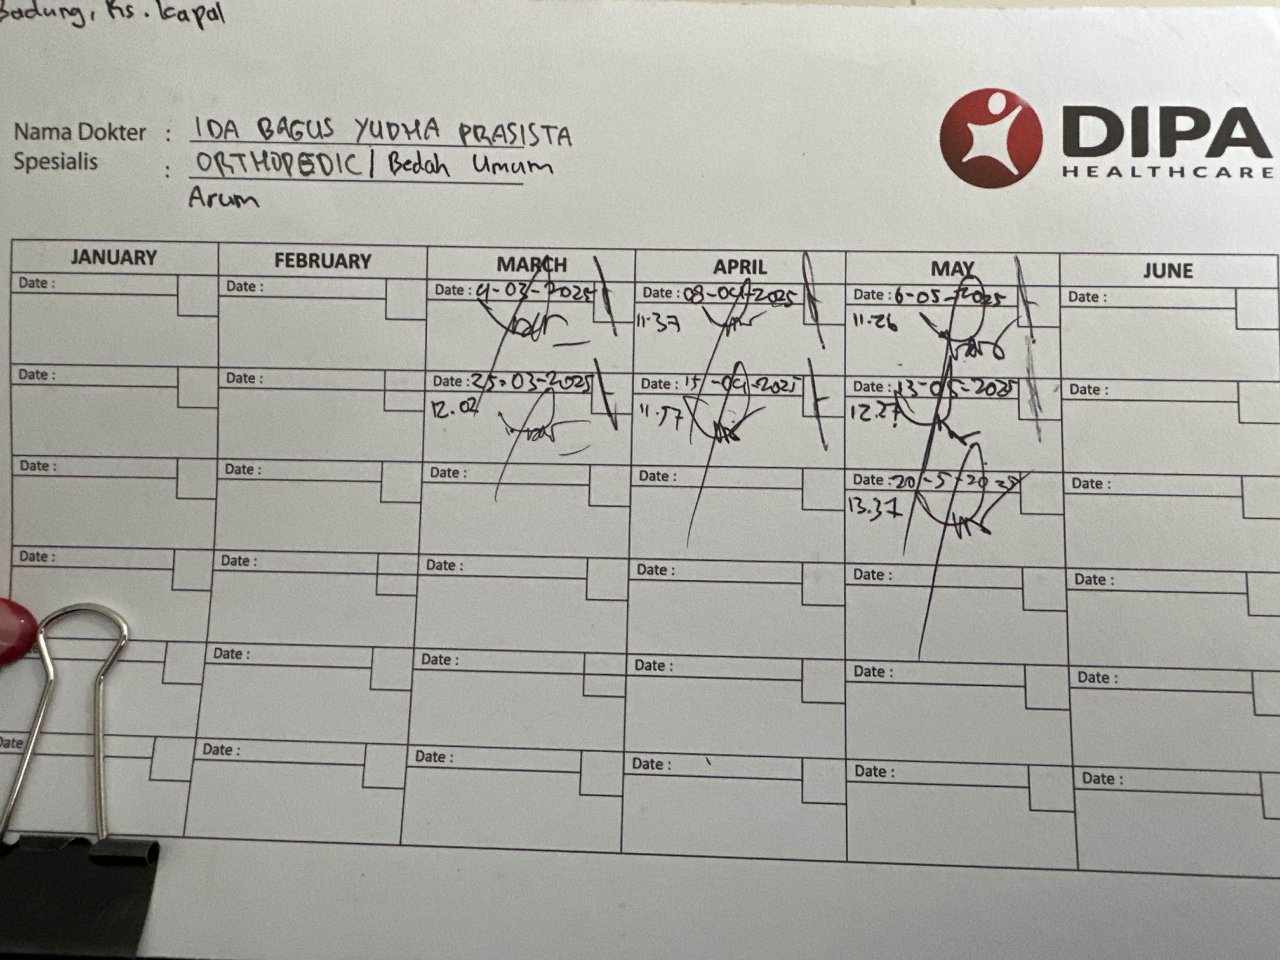 Badung, Rs. Kapal
DIPA
HEALTHCARE
Nama Dokter : IDA BAGUS YUDHA PRASISTA
Spesialis : ORTHOPEDIC / Bedah Umum
Arum
JANUARY FEBRUARY MARCH APRIL MAY JUNE
Date : Date : Date : 4-03-2025 Date : 08-04-2025 Date : 6-05-2025 Date :
11.37 11.26
Date : Date : Date : 25-03-2025 Date : 15-04-2025 Date : 13-05-2025 Date :
12.02 11.57 12.27
Date : Date : Date : Date : Date : 20-5-2025 Date :
13.37
Date : Date : Date : Date : Date : Date :
Date : Date : Date : Date : Date :
Date Date : Date : Date : Date : Date :